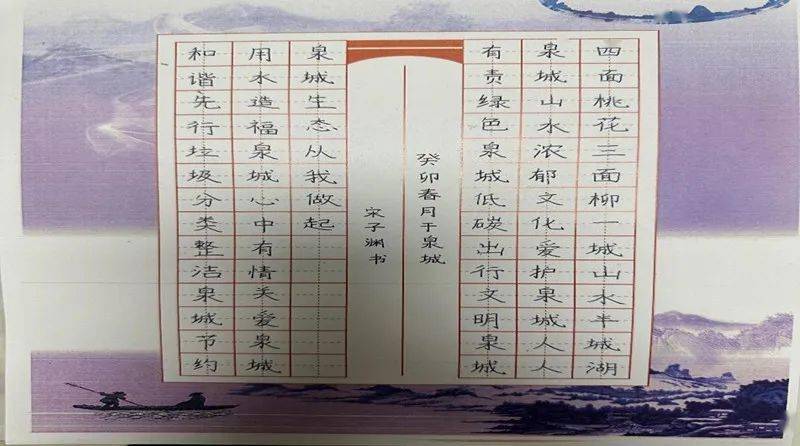 四面桃花三面柳一城山水半城湖
泉城山水浓郁文化爱护泉城人人
有责绿色泉城低碳出行文明泉城
和谐先行垃圾分类整洁泉城节约
用水造福泉城心中有情关爱泉城
泉城生态从我做起
癸卯春月于泉城
宋子渊书